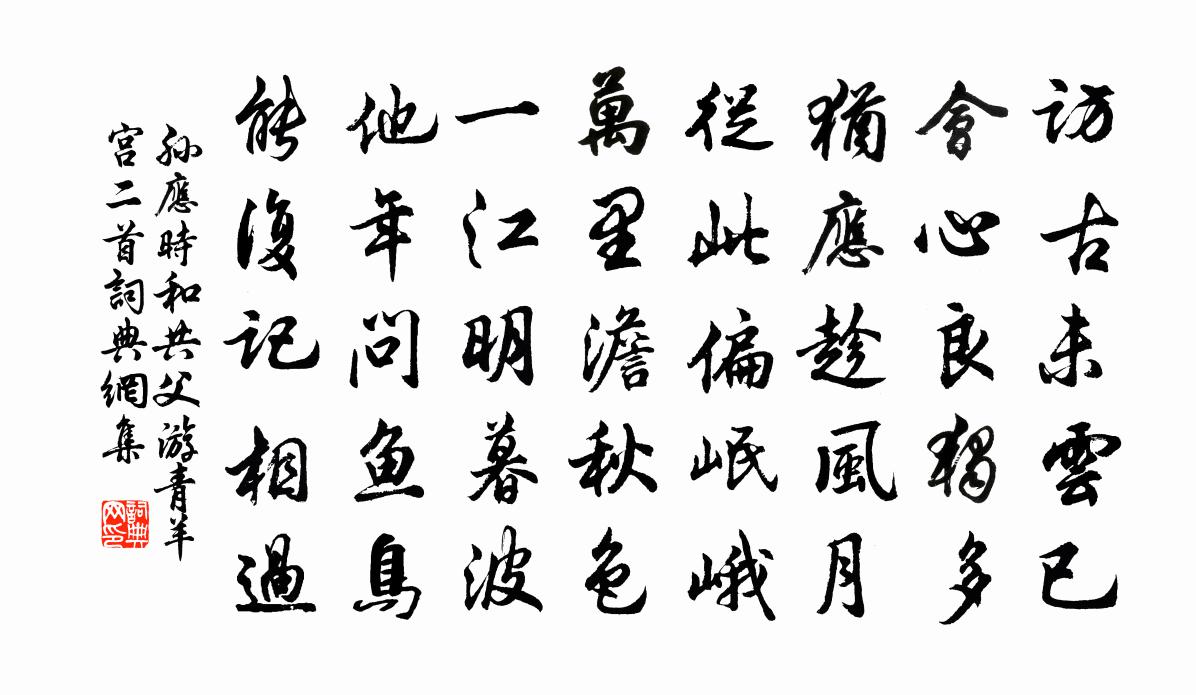 訪古未雲已
會心良獨多
猶應趁風月
從此偏岷峨
萬里澹秋色
一江明暮波
他年問魚鳥
能復記相過
孫應時和共父游青羊
宮二首詞典網集
詞典
网印